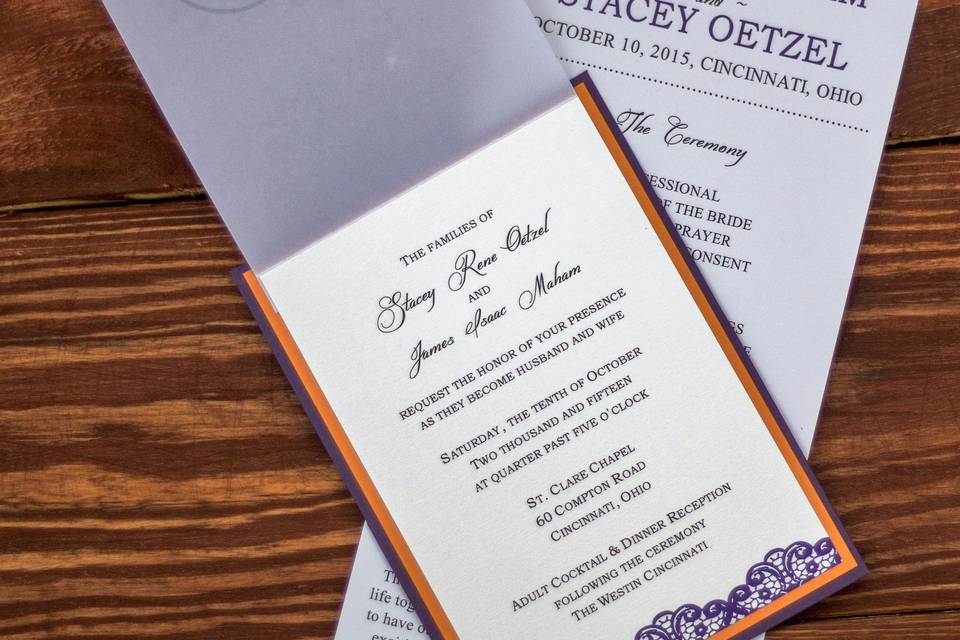 The families of
Stacey Rene Oetzel
and
James Isaac Maham
request the honor of your presence
as they become husband and wife
Saturday, the tenth of October
Two thousand and fifteen
at quarter past five o'clock
St. Clare Chapel
60 Compton Road
Cincinnati, Ohio
Adult Cocktail & Dinner Reception
following the ceremony
The Westin Cincinnati
and ~
STACEY OETZEL
OCTOBER 10, 2015, CINCINNATI, OHIO
The Ceremony
OF THE BRIDE
PRAYER
life
to have